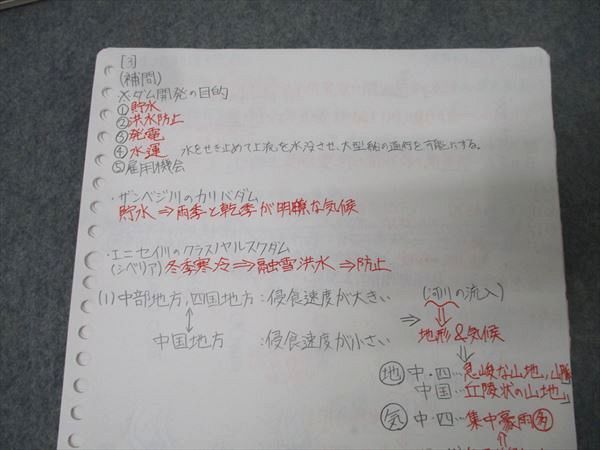 [3]
(補問)
※ダム開発の目的
①貯水
②洪水防止
③発電
④水運 水をせき止めて上流を水没させ、大型船の通行を可能にする。
⑤雇用機会
・ザンベジ川のカリバダム
貯水⇒雨季と乾季が明瞭な気候
・エニセイ川のクラスノヤルスクダム
(シベリア)冬季寒冷⇒融雪洪水⇒防止
(1)中部地方,四国地方:侵食速度が大きい
(河川の流入)
⇒ 地形&気候
中国地方 :侵食速度が小さい
地 中・四…急峻な山地,山脈
中国…丘陵状の山地
気 中・四…集中豪雨多